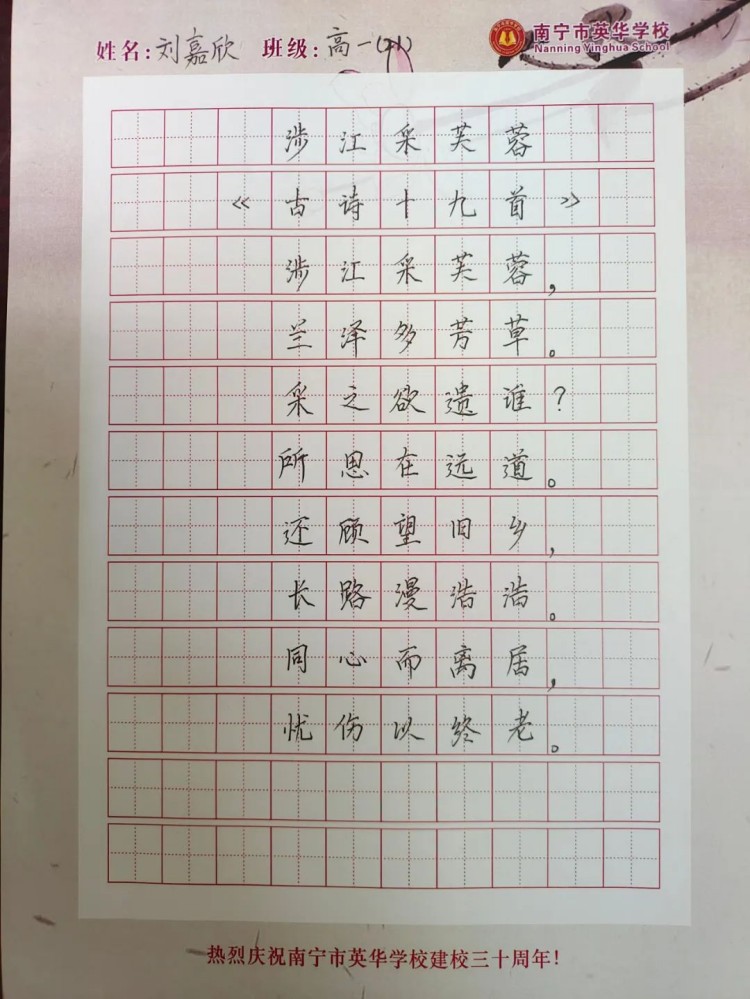 南宁市英华学校
Nanning Yinghua School
姓名:刘嘉欣 班级:高一
涉江采芙蓉
《古诗十九首》
涉江采芙蓉,
兰泽多芳草。
采之欲遗谁?
所思在远道。
还顾望旧乡,
长路漫浩浩。
同心而离居,
忧伤以终老。
热烈庆祝南宁市英华学校建校三十周年!